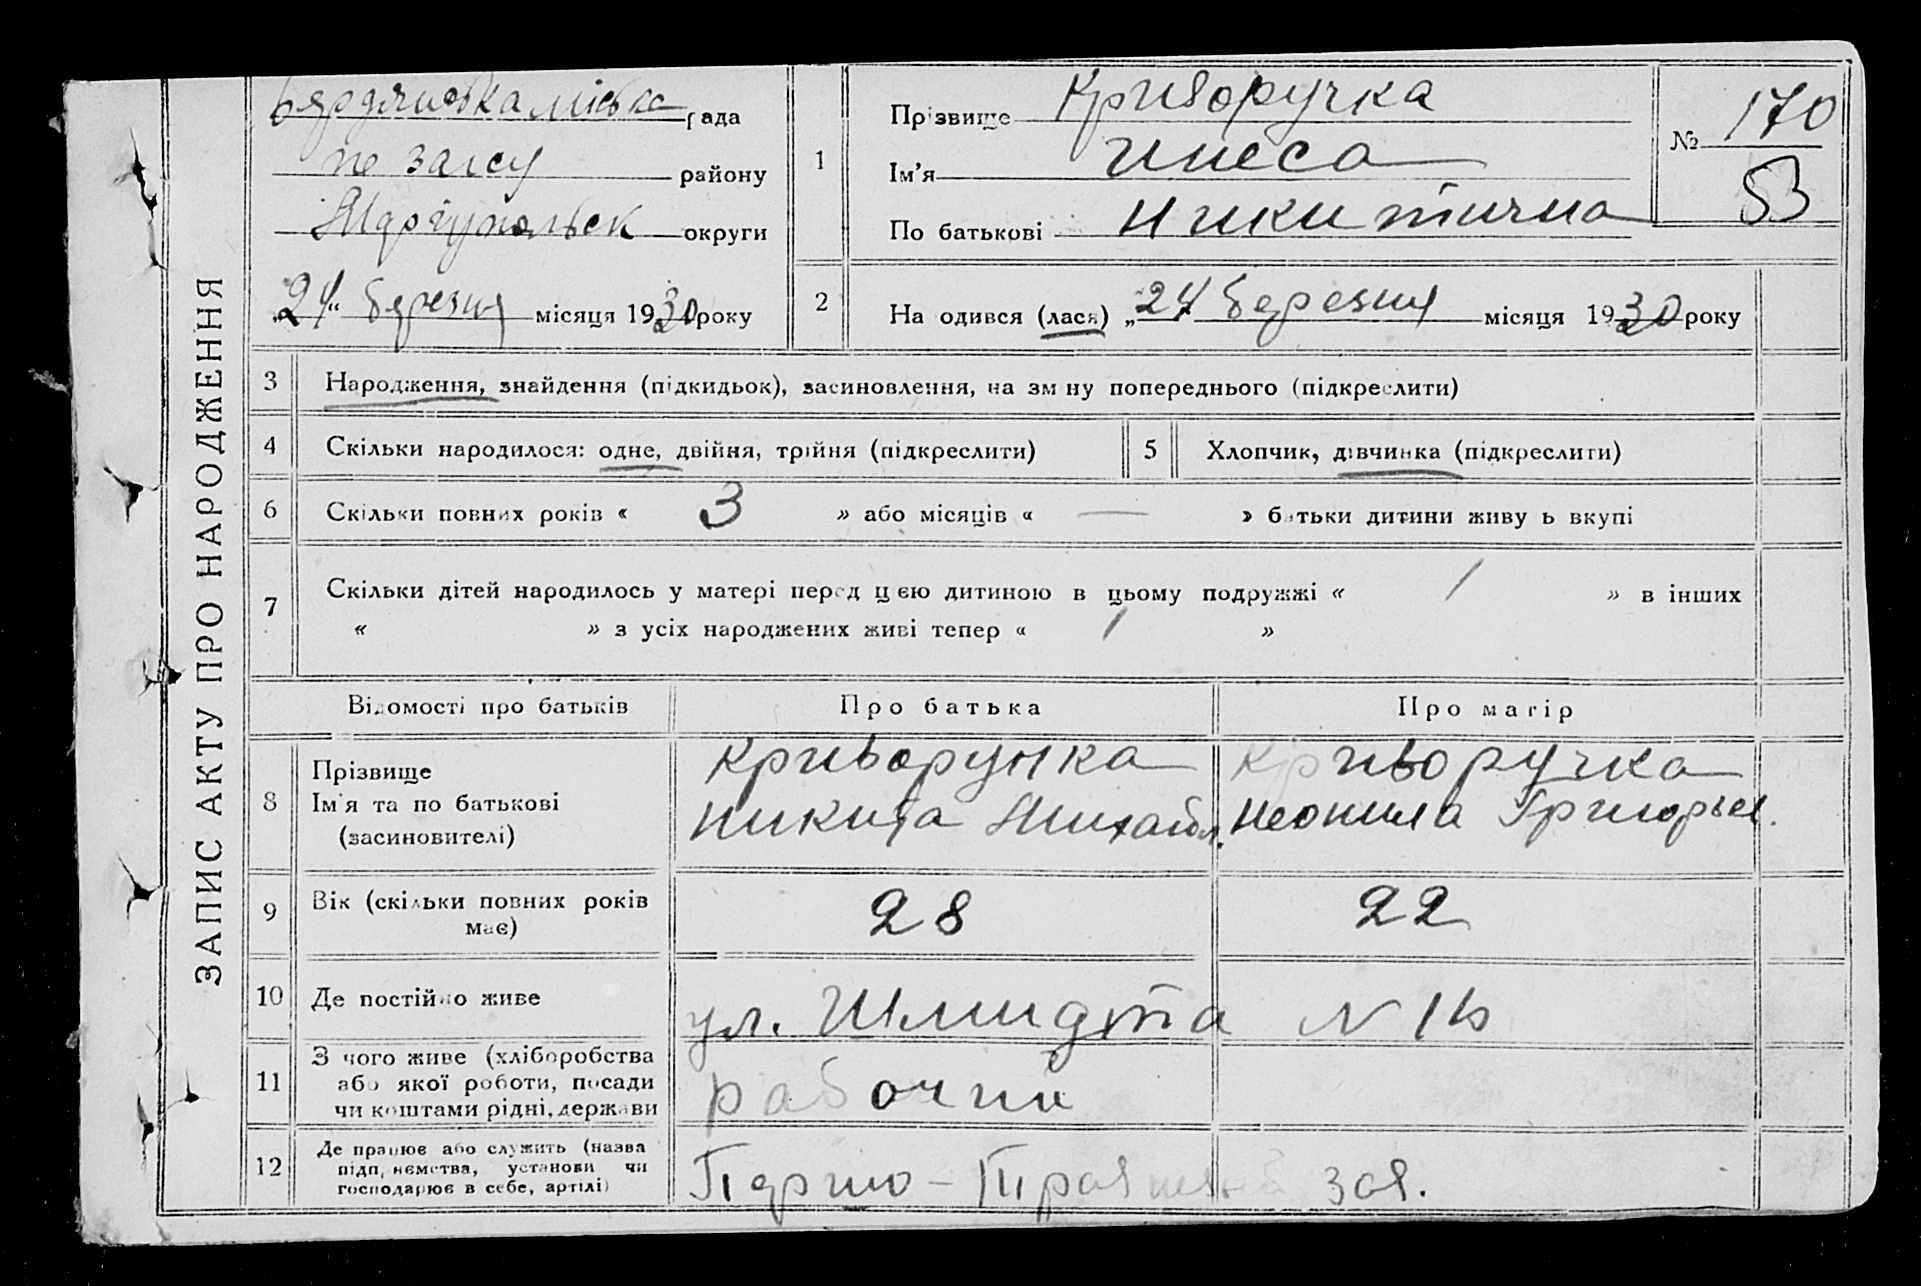 ЗАПИС АКТУ ПРО НАРОДЖЕННЯ
Бердянська міська рада
по загсу району
Маріупольськ округи
„24“ березня місяця 1930 року
1
Прізвище Криворучка
Ім'я Инеса
По батькові Никитична
№ 170
53
2
На одився (лася) „24 березня місяця 1930 року
3 Народження, знайдення (підкидьок), засиновлення, на зміну попереднього (підкреслити)
4 Скільки народилося: одне, двійня, трійня (підкреслити)
5 Хлопчик, дівчинка (підкреслити)
6 Скільки повних років « 3 » або місяців « — » батьки дитини живуть вкупі
7 Скільки дітей народилось у матері перед цією дитиною в цьому подружжі « 1 » в інших
« » з усіх народжених живі тепер « 1 »
Відомості про батьків
Про батька
Про матір
8 Прізвище
Ім'я та по батькові
(засиновителі)
Криворучка
Никита Михайл.
Криворучка
Неонила Григорьев.
9 Вік (скільки повних років
має)
28
22
10 Де постійно живе
ул. Шмидта N 16
11 З чого живе (хліборобства
або якої роботи, посади
чи коштами рідні, держави
рабочий
12 Де працює або служить (назва
підприємства, установи чи
господарює в себе, артілі)
Першо-Травневий зав.